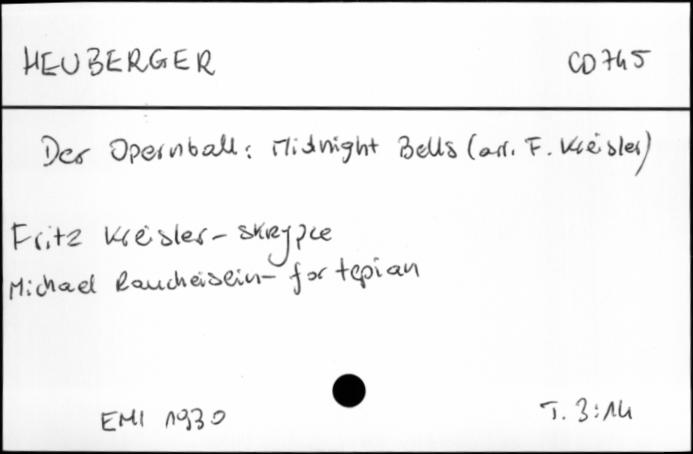 HEUBERGER CD 745
Der Opernball: Midnight Bells (arr. F. Kreisler)
Fritz Kreisler - skrzypce
Michael Raucheisein - fortepian
EMI 1930 T. 3:14